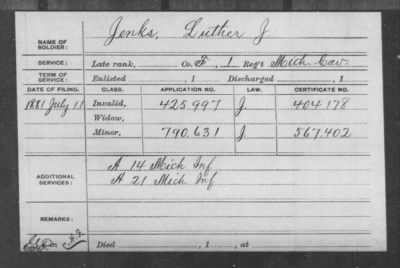 NAME OF SOLDIER: Jenks, Luther J.
SERVICE: Late rank, Co. F, 1 Reg't Mich Cav.
TERM OF SERVICE: Enlisted , 1 Discharged , 1
DATE OF FILING. CLASS. APPLICATION NO. LAW. CERTIFICATE NO.
1881 July 11 Invalid, 425997 J. 404178
Widow,
Minor, 790.631 J 567.402
ADDITIONAL SERVICES: A 14 Mich Inf
A 21 Mich Inf
REMARKS:
Died , 1 , at